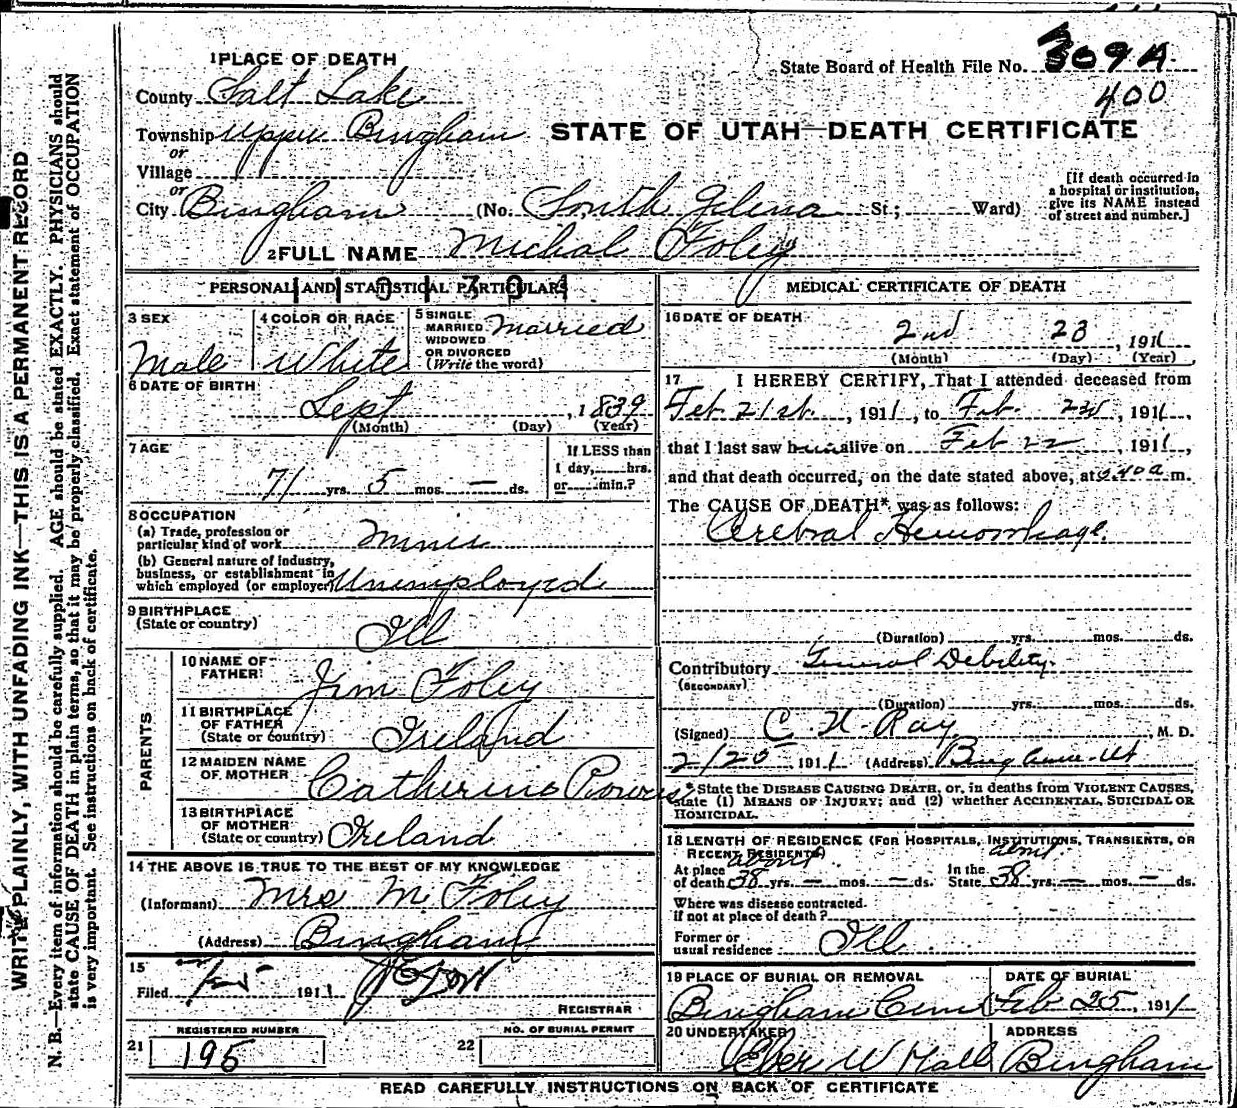 1 PLACE OF DEATH
State Board of Health File No. 309A
400
County Salt Lake
Township Upper Bingham
STATE OF UTAH—DEATH CERTIFICATE
or
Village
or
City Bingham (No. South Gelena St.; Ward)
[If death occurred in a hospital or institution, give its NAME instead of street and number.]
2 FULL NAME Michal Foley
PERSONAL AND STATISTICAL PARTICULARS
3 SEX Male
4 COLOR OR RACE White
5 SINGLE MARRIED WIDOWED OR DIVORCED (Write the word) Married
6 DATE OF BIRTH
Sept, 1839
(Month) (Day) (Year)
7 AGE
71 yrs. 5 mos. — ds.
If LESS than 1 day, hrs. or min.?
8 OCCUPATION
(a) Trade, profession or particular kind of work Miner
(b) General nature of industry, business, or establishment in which employed (or employer) Unemployed
9 BIRTHPLACE
(State or country) Ill
PARENTS
10 NAME OF FATHER Jim Foley
11 BIRTHPLACE OF FATHER (State or country) Ireland
12 MAIDEN NAME OF MOTHER Catherine Powers
13 BIRTHPLACE OF MOTHER (State or country) Ireland
14 THE ABOVE IS TRUE TO THE BEST OF MY KNOWLEDGE
(Informant) Mrs M. Foley
(Address) Bingham
15
Filed 1911
REGISTRAR
REGISTERED NUMBER
21 195
NO. OF BURIAL PERMIT
22
MEDICAL CERTIFICATE OF DEATH
16 DATE OF DEATH
2nd 23, 1911
(Month) (Day) (Year)
17 I HEREBY CERTIFY, That I attended deceased from
Feb. 21st., 1911, to Feb. 23d, 1911,
that I last saw him alive on Feb 22, 1911,
and that death occurred, on the date stated above, at 2.40 a m.
The CAUSE OF DEATH* was as follows:
Cerebral Hemorrhage.
(Duration) yrs. mos. ds.
Contributory General Debility.
(SECONDARY)
(Duration) yrs. mos. ds.
(Signed) C. N. Ray, M. D.
2/25 1911 (Address) Bingham Ut
*State the DISEASE CAUSING DEATH, or, in deaths from VIOLENT CAUSES,
state (1) MEANS OF INJURY; and (2) whether ACCIDENTAL, SUICIDAL OR
HOMICIDAL.
18 LENGTH OF RESIDENCE (FOR HOSPITALS, INSTITUTIONS, TRANSIENTS, OR
RECENT RESIDENTS)
about about
At place of death 38 yrs. — mos. — ds. In the State 38 yrs. — mos. — ds.
Where was disease contracted
if not at place of death?
Former or usual residence Ill
19 PLACE OF BURIAL OR REMOVAL
Bingham Cem
DATE OF BURIAL
Feb 25, 1911
20 UNDERTAKER
Eber W Hall
ADDRESS
Bingham
READ CAREFULLY INSTRUCTIONS ON BACK OF CERTIFICATE
WRITE PLAINLY, WITH UNFADING INK—THIS IS A PERMANENT RECORD
N. B.—Every item of information should be carefully supplied. AGE should be stated EXACTLY. PHYSICIANS should
state CAUSE OF DEATH in plain terms, so that it may be properly classified. Exact statement of OCCUPATION
is very important. See instructions on back of certificate.